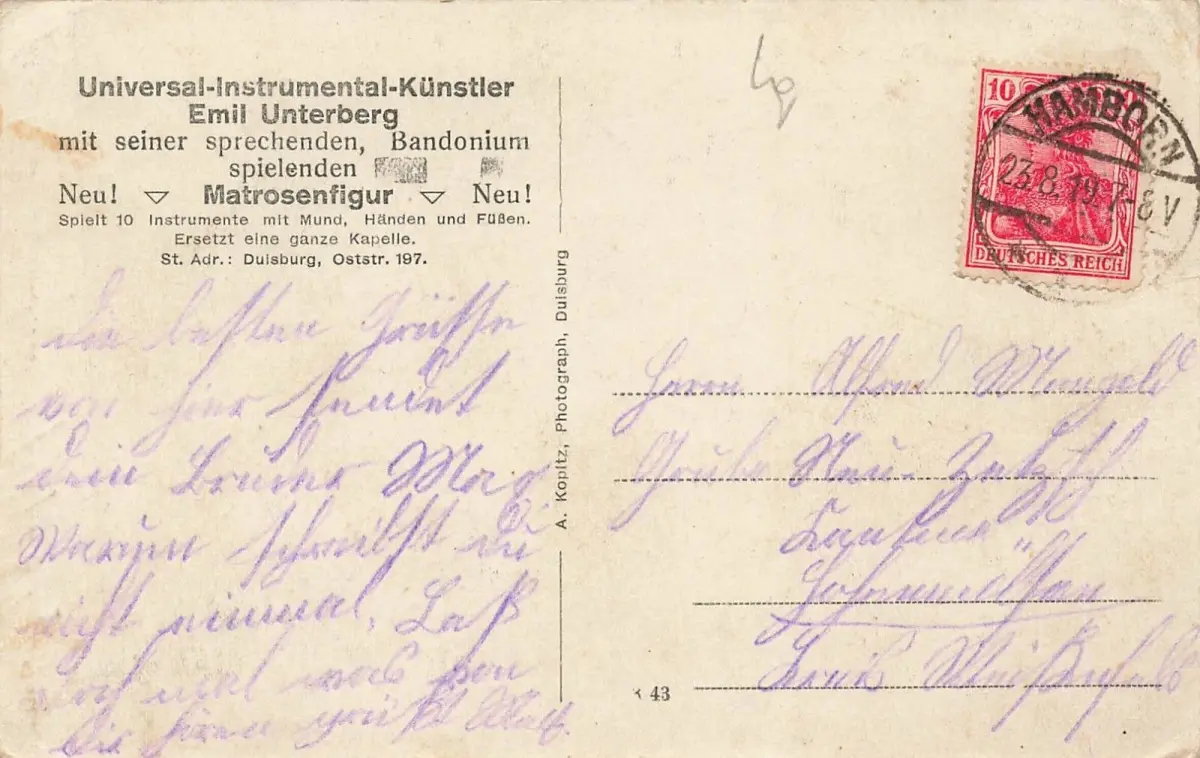 Universal-Instrumental-Künstler
Emil Unterberg
mit seiner sprechenden, Bandonium
spielenden
Neu! Matrosenfigur Neu!
Spielt 10 Instrumente mit Mund, Händen und Füßen.
Ersetzt eine ganze Kapelle.
St. Adr.: Duisburg, Oststr. 197.
Die besten Grüsse
von hier sendet
dein Bruder Max
Warum schreibst du
nicht einmal. Laß
doch mal was von
Dir hören grüßt
A. Kopitz, Photograph, Duisburg
43
10
HAMBORN
23.8.19.7-8V
DEUTSCHES REICH
Herrn Alfred
Grube
Kreis Weißenfels